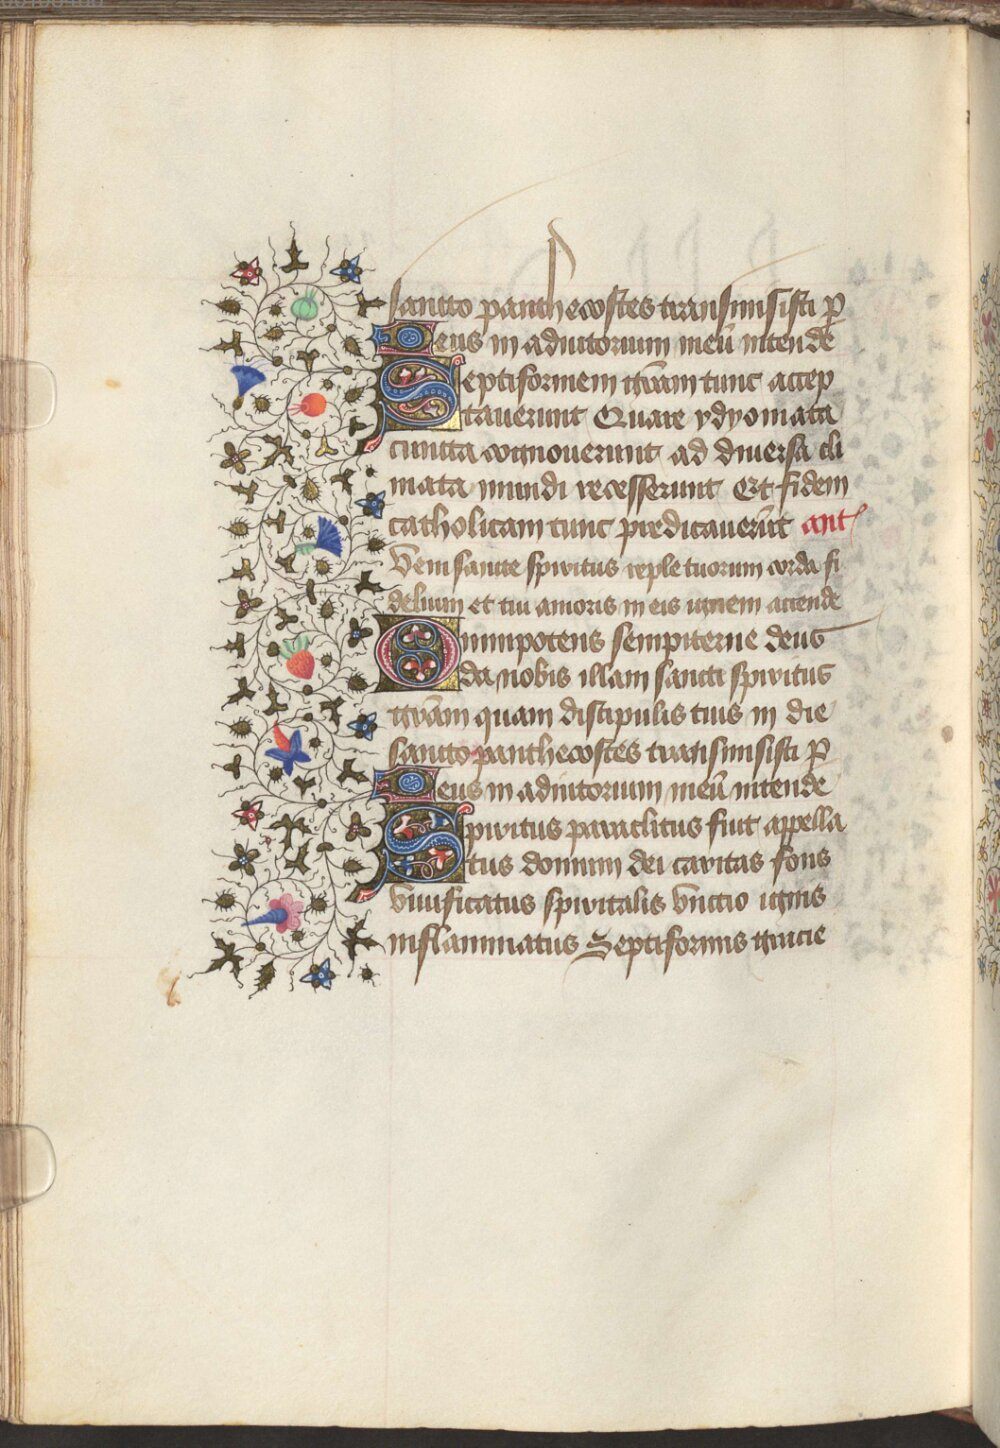 sancto panthecostes transmisisti p
Deus in adiutorium meū intende
Septiformem gr̄am tunc accep
taverunt Quare ydyomata
cuncta cognoverunt ad diversa cli
mata mundi recesserunt Et fidem
catholicam tunc predicaverūt ant
Veni sancte spiritus reple tuorum corda fi
delium et tui amoris in eis ignem accende
Omnipotens sempiterne deus
da nobis illam sancti spiritus
gr̄am quam discipulis tuis in die
sancto panthecostes transmisisti p
Deus in adiutorium meū intende
Spiritus paraclitus fuit appella
tus donum dei caritas fons
vivificatus spiritalis vnctio ignis
inflammatus Septiformis gracie